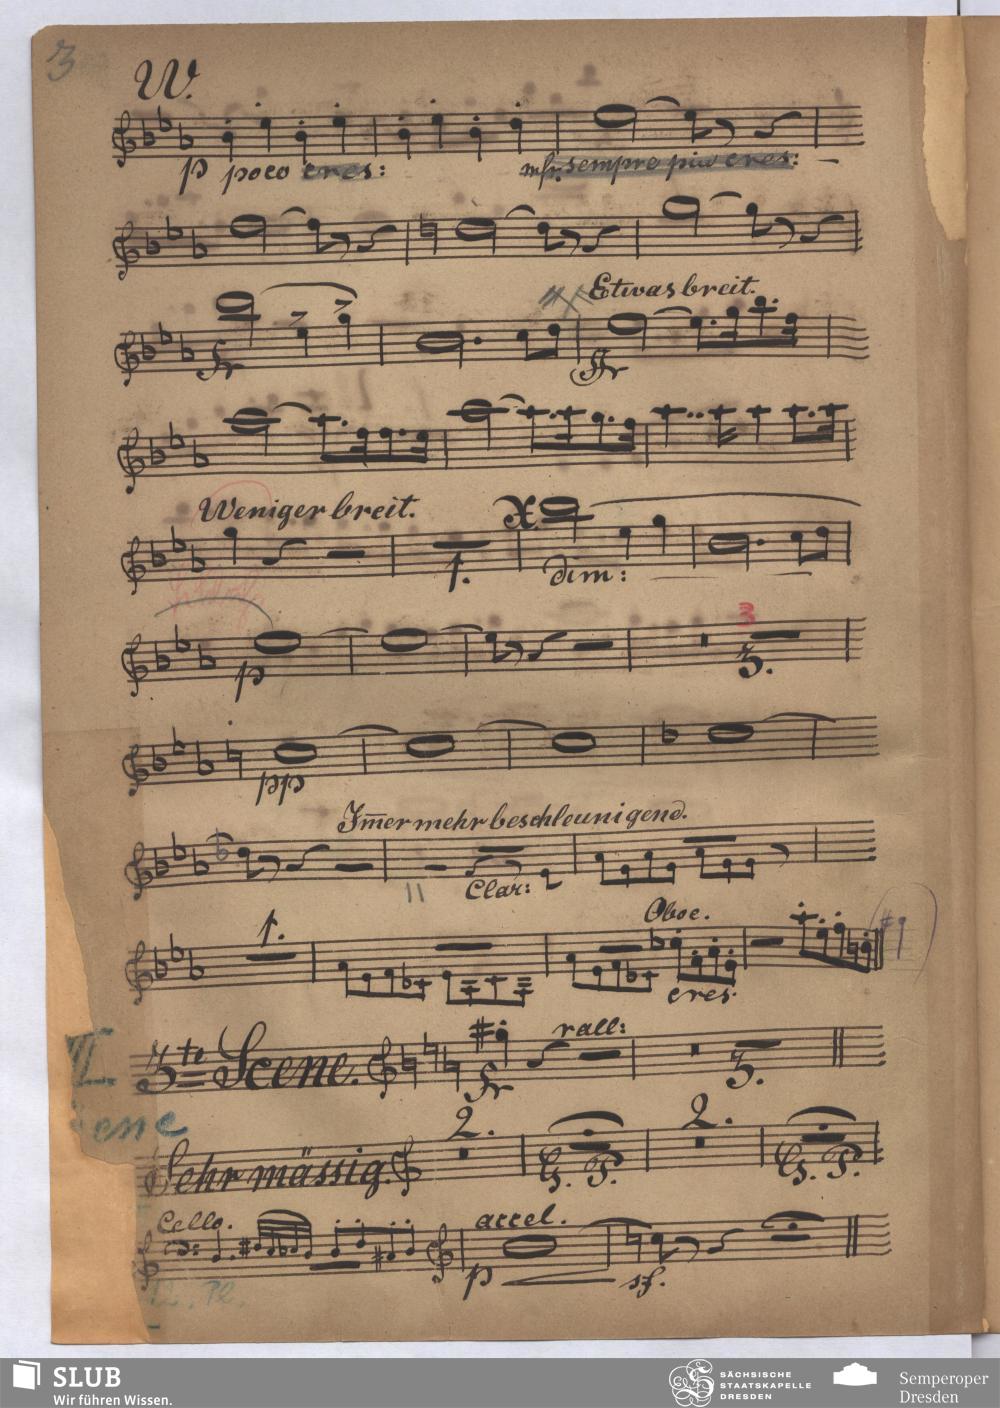 3
W.
p poco cres: mfr. sempre piu cres:
Etwas breit.
fr ffr
Weniger breit. X
1. dim:
p 3 3.
pp
Im̅er mehr beschleunigend.
11 Clar:
1. Oboe.
cres.
III
3te Scene. rall:
fr 3.
Scene
2. 2.
Sehr mässig. G. P. G. P.
Cello. accel.
p sf.
SLUB
Wir führen Wissen.
SÄCHSISCHE
STAATSKAPELLE
DRESDEN
Semperoper
Dresden